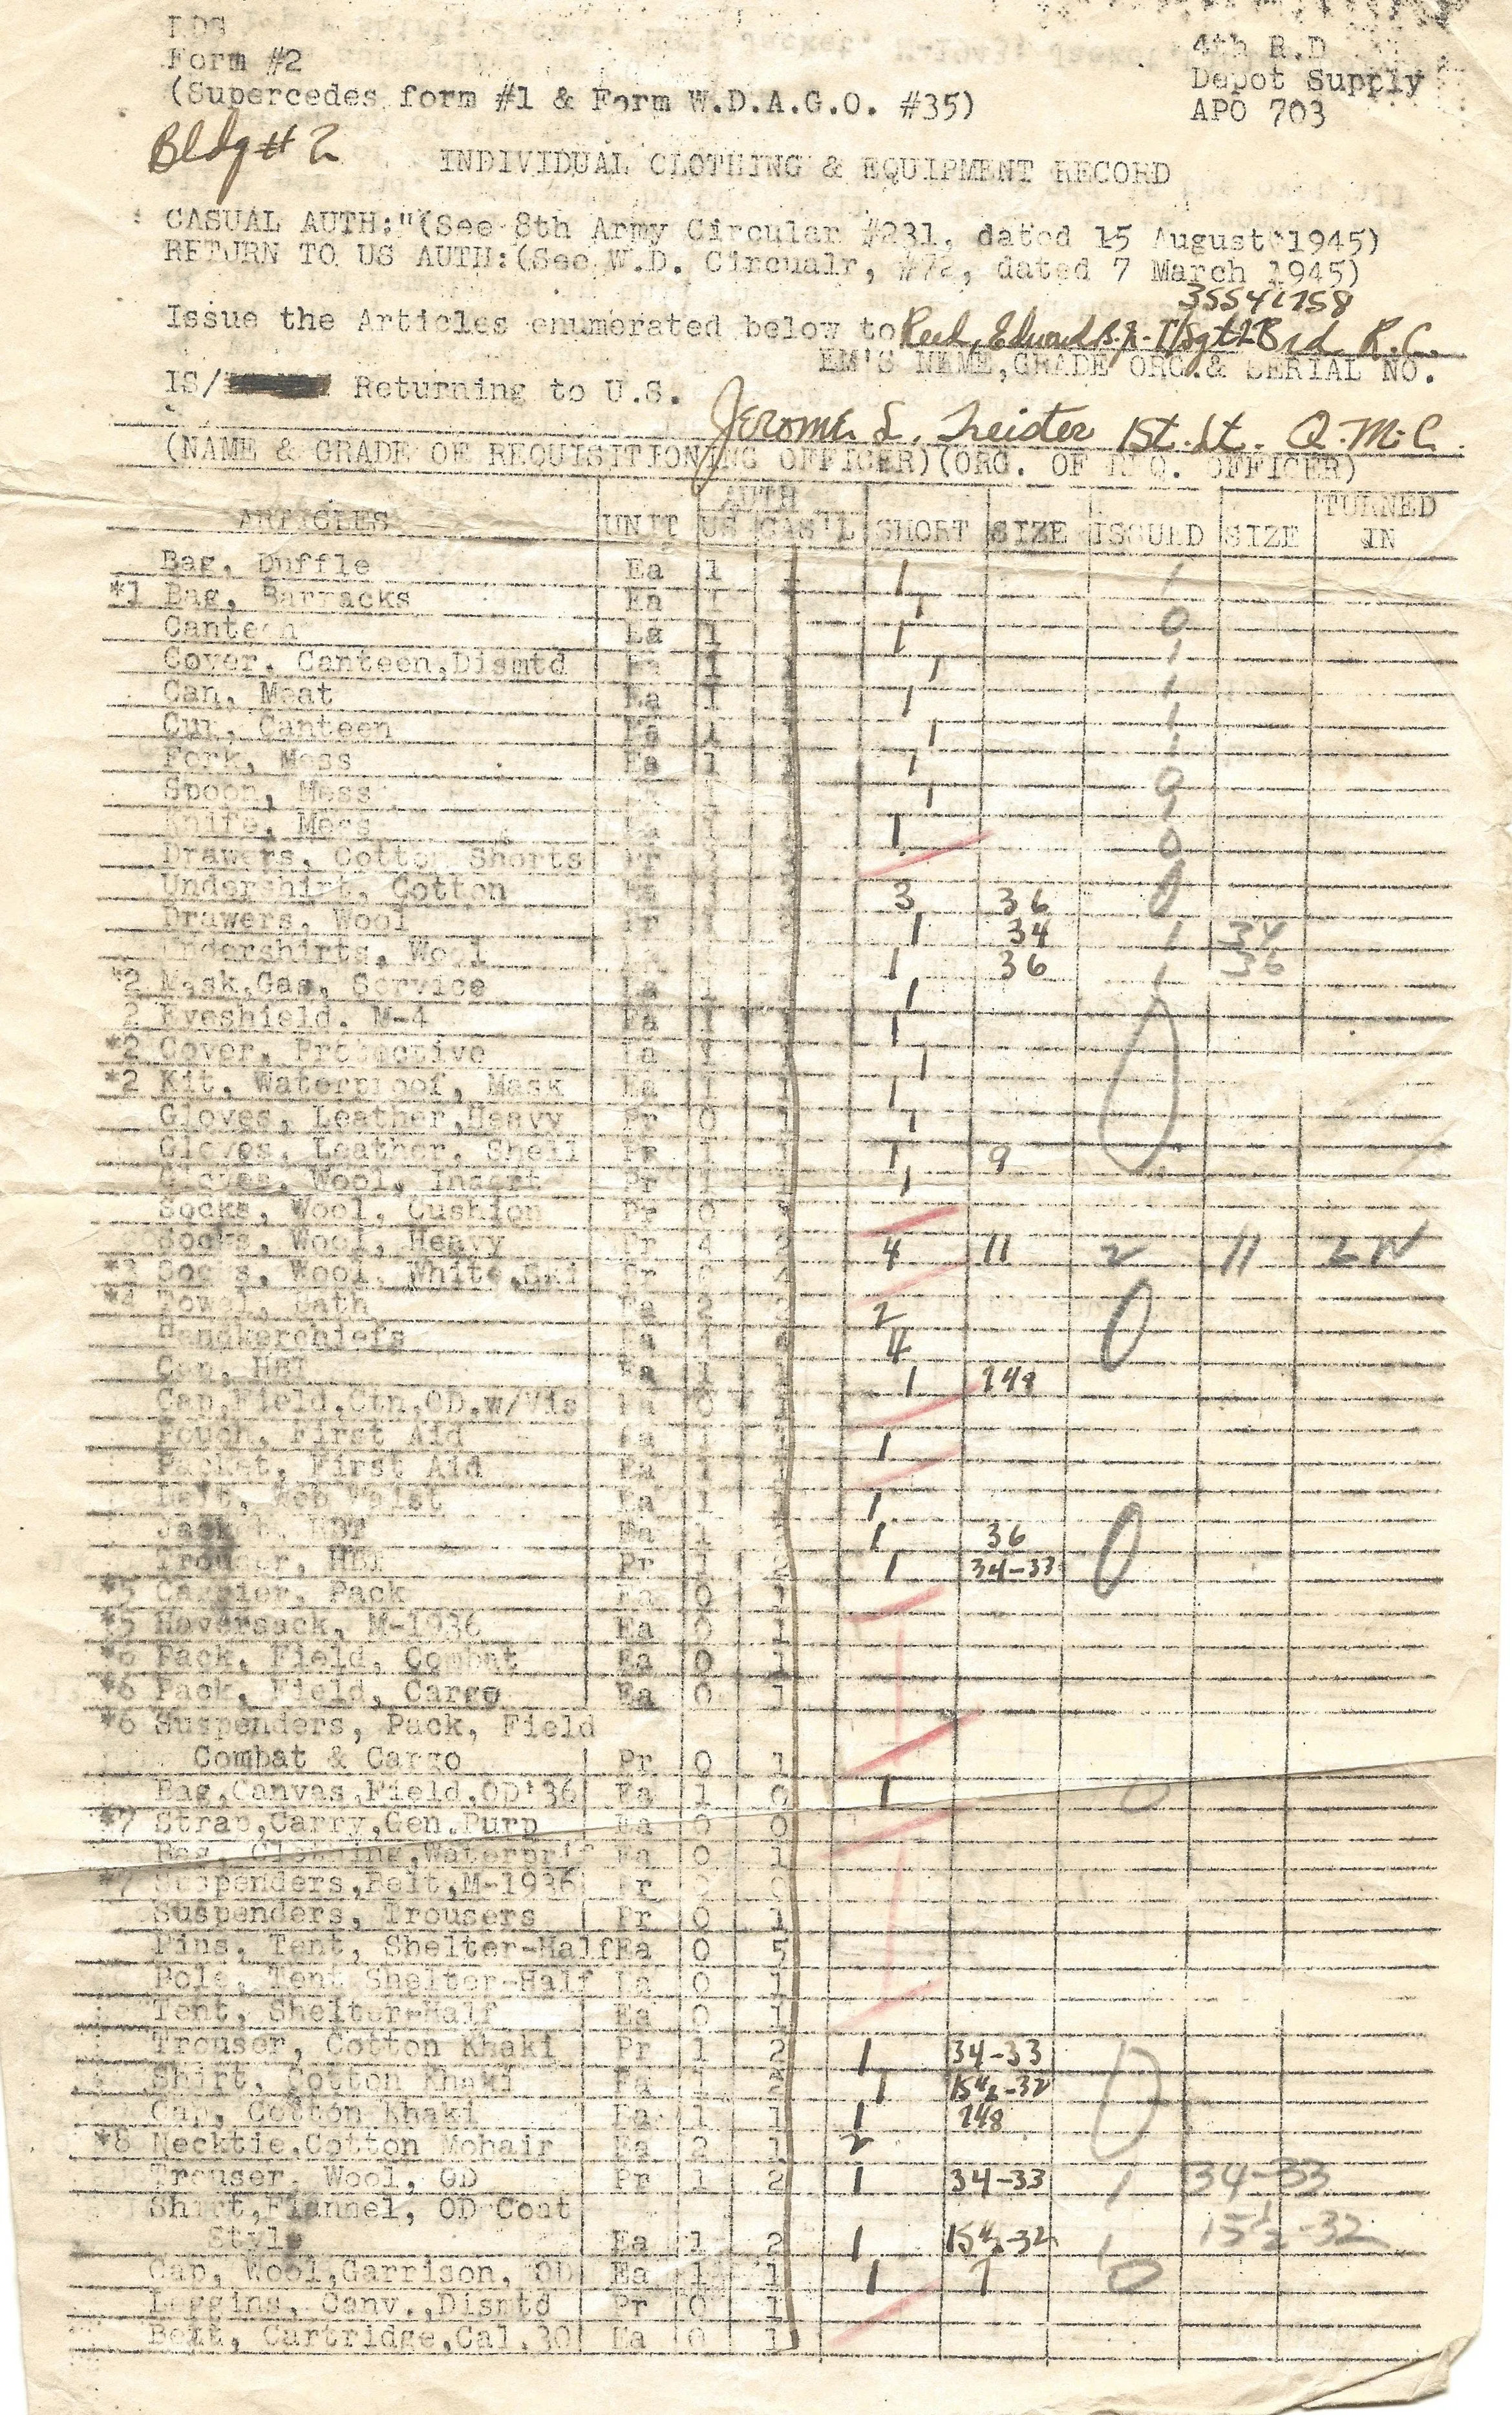 Form #2
(Supercedes form #1 & Form W.D.A.G.O. #35)
4th R.D
Depot Supply
APO 703
Bldg # 2
INDIVIDUAL CLOTHING & EQUIPMENT RECORD
CASUAL AUTH:"(See 8th Army Circular #231, dated 15 August 1945)
RETURN TO US AUTH:(See W.D. Circualr, #72, dated 7 March 1945)
35541758
Issue the Articles enumerated below to Reed, Edward B. Jr. T/Sgt R.C.
EM'S NAME,GRADE ORG.& SERIAL NO.
IS/ Returning to U.S.
Jerome L. 1st. Lt. Q.M.C.
(NAME & GRADE OF REQUISITIONING OFFICER)(ORG. OF REQ. OFFICER)
ARTICLES UNIT AUTH US CAS'L SHORT SIZE ISSUED SIZE TURNED IN
Bag, Duffle Ea 1 1 1
*1 Bag, Barracks Ea 1 1 0
Canteen Ea 1 1 1
Cover, Canteen,Dismtd Ea 1 1 1
Can, Meat Ea 1 1 1
Cup, Canteen Ea 1 1 1
Fork, Mess Ea 1 1 1 0
Spoon, Mess 1 1
Knife, Mess Ea 1 1 0
Drawers, Cotton Shorts Pr
Undershirt, Cotton Ea 3 36 0
Drawers, Wool Pr 1 34 1 34
Undershirts, Wool 1 36 1 36
*2 Mask,Gas, Service Ea 1 1
2 Eyeshield, M-4 Ea 1 1
*2 Cover, Protective Ea 1 1
*2 Kit, Waterproof, Mask Ea 1 1 1 0
Gloves, Leather,Heavy Pr 0 1 1
Gloves, Leather, Shell Pr 1 1 1 9
Gloves, Wool, Insert Pr 1 1 1
Socks, Wool, Cushion Pr 0
Socks, Wool, Heavy Pr 4 2 4 11 2 11
*3 Socks, Wool, White,Ski Pr
*4 Towel, Bath Ea 2 2 0
Handkerchiefs Ea 4 4
Cap, HBT Ea 1 1 1 748
Cap,Field,Ctn,OD,w/Vis Ea 0 1
Pouch, First Aid Ea 1 1
Packet, First Aid Ea 1
Belt, Web Waist Ea 1 1
Jacket, HBT Ea 1 1 36 0
Trouser, HBT Pr 1 1 34-33
*5 Carrier, Pack Ea 0 1
*5 Haversack, M-1936 Ea 0 1
*6 Pack, Field, Combat Ea 0 1
*6 Pack, Field, Cargo Ea 0 1
*6 Suspenders, Pack, Field
Combat & Cargo Pr 0 1
Bag,Canvas,Field,OD'36 Ea 1 0 1 0
*7 Strap,Carry,Gen.Purp Ea 0 0
Bag, Clothing,Waterprff Ea 0 1
*7 Suspenders,Belt,M-1936 Pr 0 0
Suspenders, Trousers Pr 0 1
Pins, Tent, Shelter-Half Ea 0 5
Pole, Tent Shelter-Half Ea 0 1
Tent, Shelter-Half Ea 0 1
Trouser, Cotton Khaki Pr 1 2 1 34-33
Shirt, Cotton Khaki Ea 1 2 1 15½-32 0
Cap, Cotton Khaki Ea 1 1 1 748
*8 Necktie,Cotton Mohair Ea 2 1 2
Trouser, Wool, OD Pr 1 2 1 34-33 1 34-33
Shirt,Flannel, OD Coat
Style Ea 1 2 1 15½-32 1 15½-32
Cap, Wool,Garrison, OD Ea 1 1 1 7 0
Leggins, Canv.,Dismtd Pr 0 1
Belt, Cartridge,Cal.30 Ea 0 1